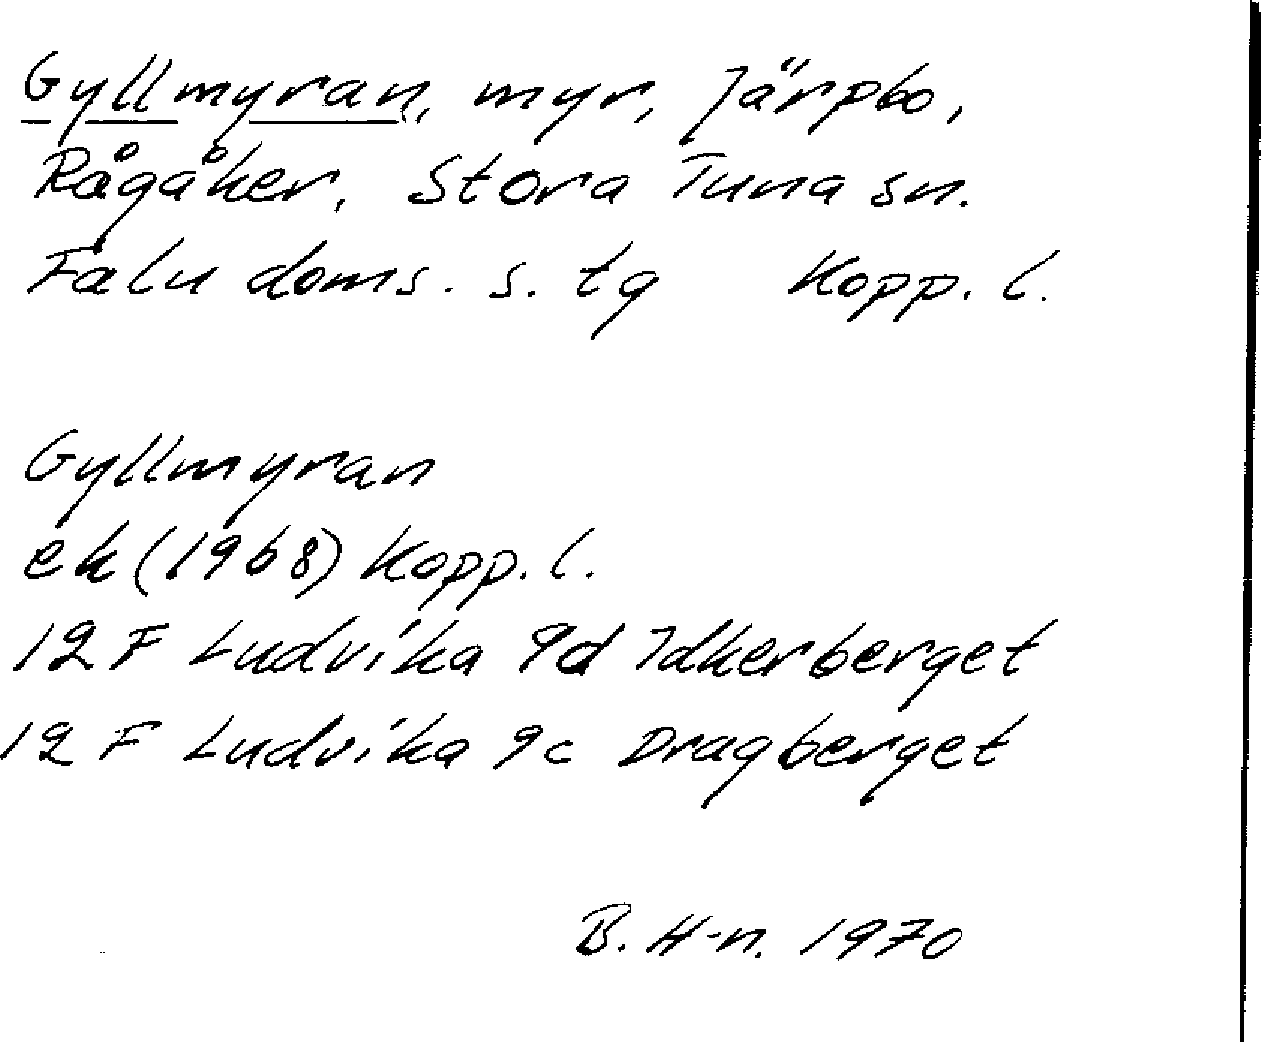 Gyllmyran, myr, Järpbo,
Rågåker, Stora Tuna sn.
Falu doms. s. tg Kopp. l.
Gyllmyran
ek (1968) Kopp. l.
12 F Ludvika 9d Idkerberget
12 F Ludvika 9c Dragberget
B. H-n. 1970